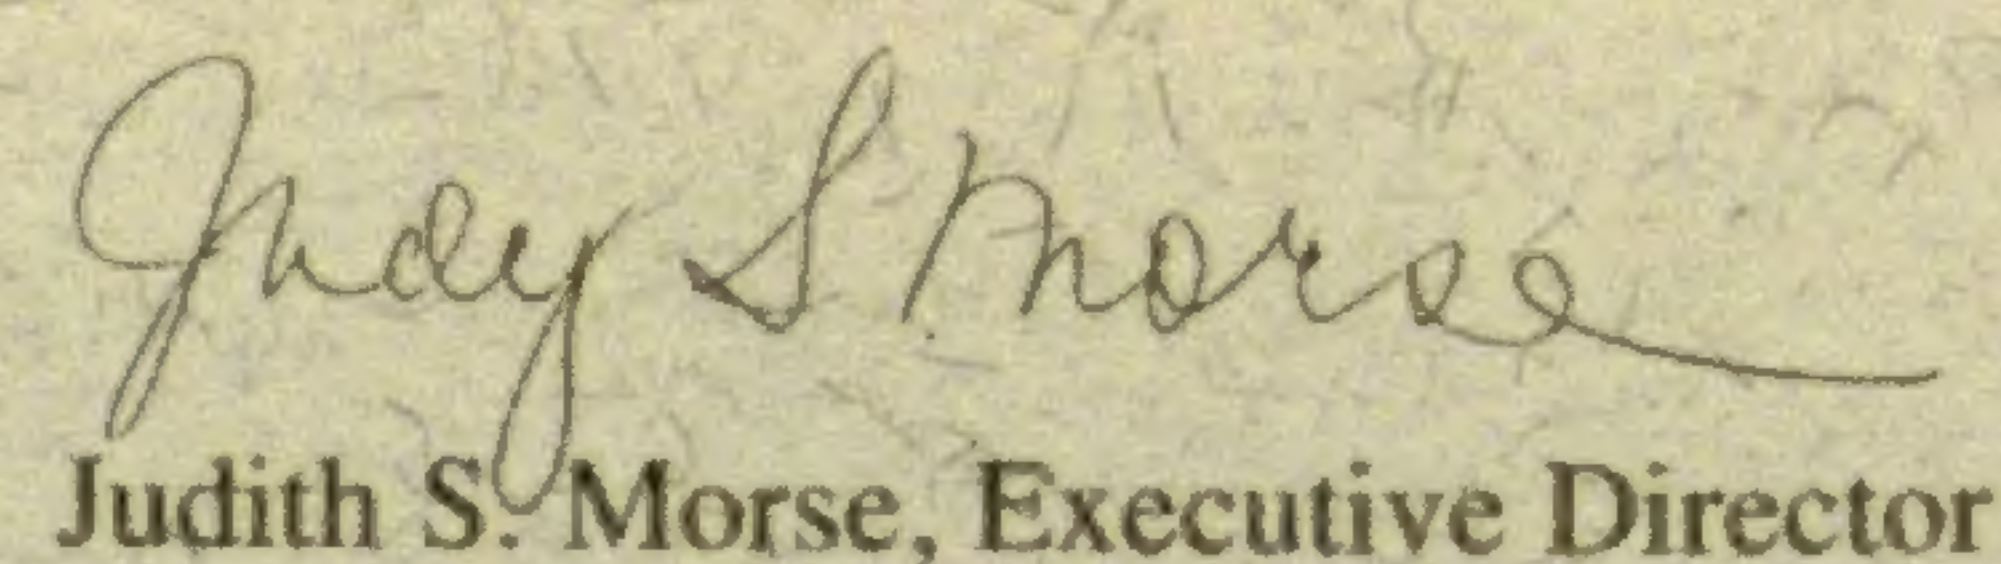 Judy S Morse
Judith S. Morse, Executive Director